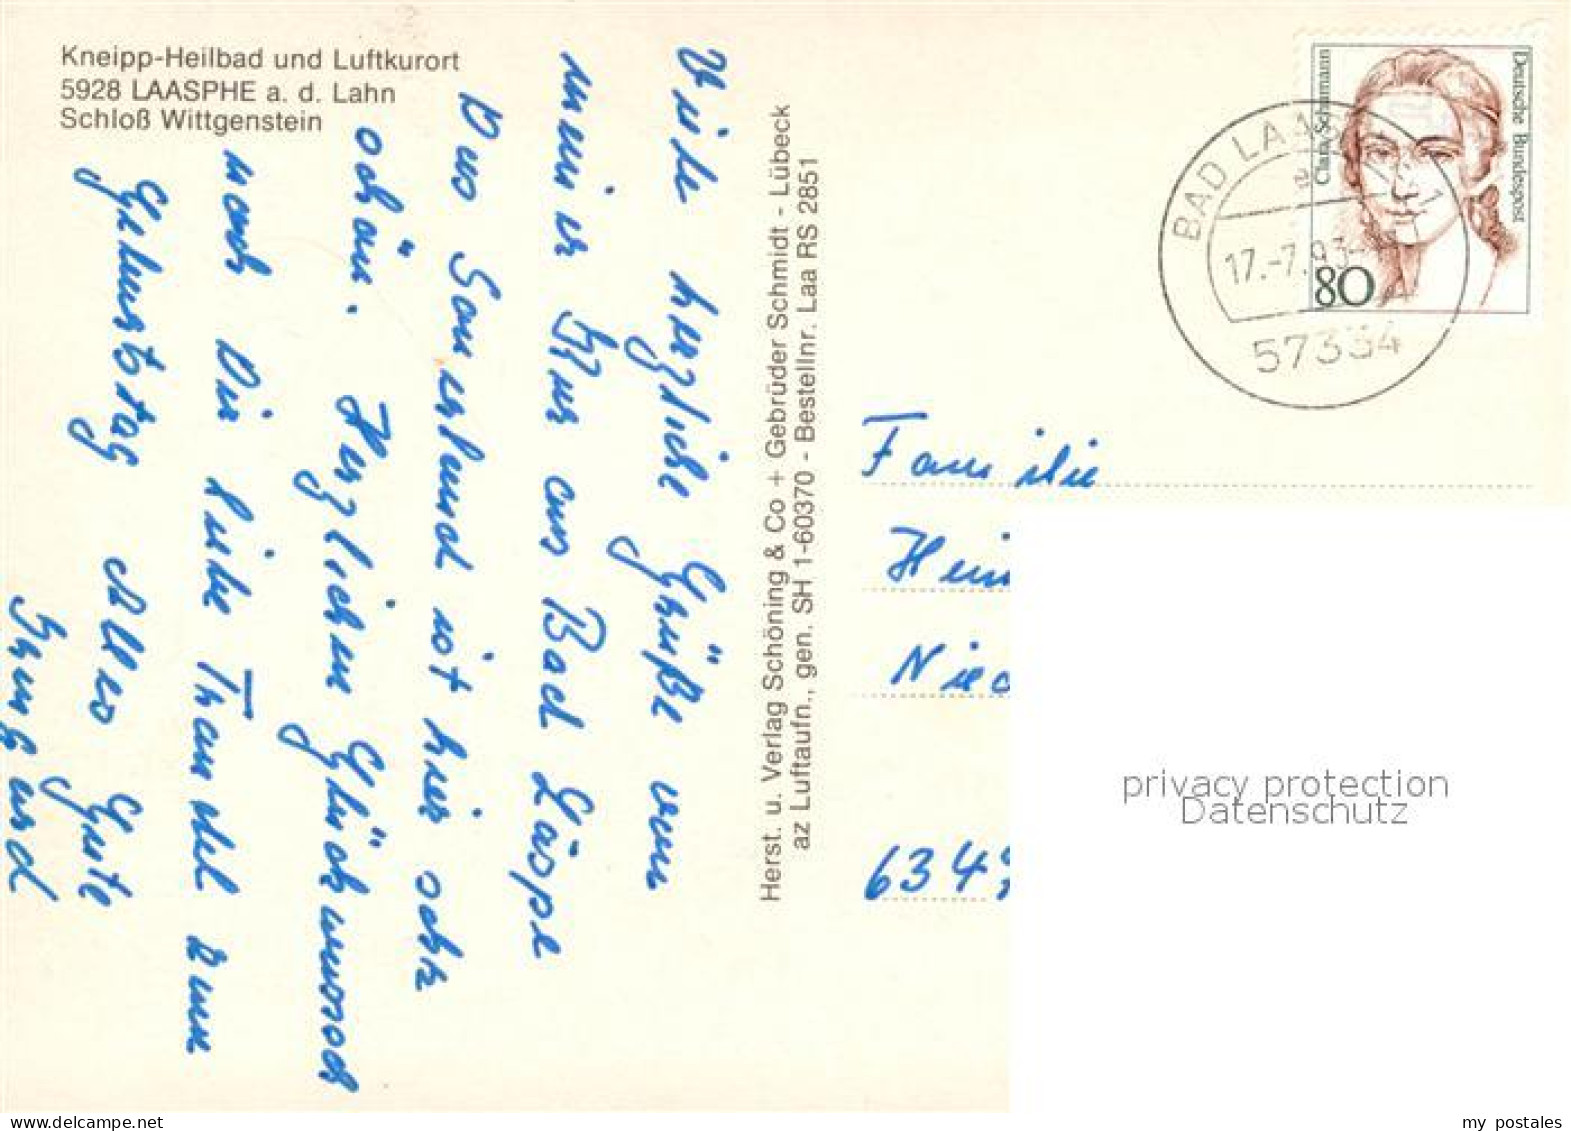 Kneipp-Heilbad und Luftkurort
5928 LAASPHE a. d. Lahn
Schloß Wittgenstein
Viele herzliche Grüße von
meiner Kur aus Bad Läspe
Das Sauerland ist hier sehr
schön. Herzlichen Glückwunsch
noch Dir liebe Traudel zum
Geburtstag Alles Gute
Irmgard
Herst. u. Verlag Schöning & Co + Gebrüder Schmidt - Lübeck
az Luftaufn., gen. SH 1-60370 - Bestellnr. Laa RS 2851
Clara Schumann
Deutsche Bundespost
80
BAD LAAS
17.-7.93
57334
Familie
Hein
Nied
634
privacy protection
Datenschutz
my postales